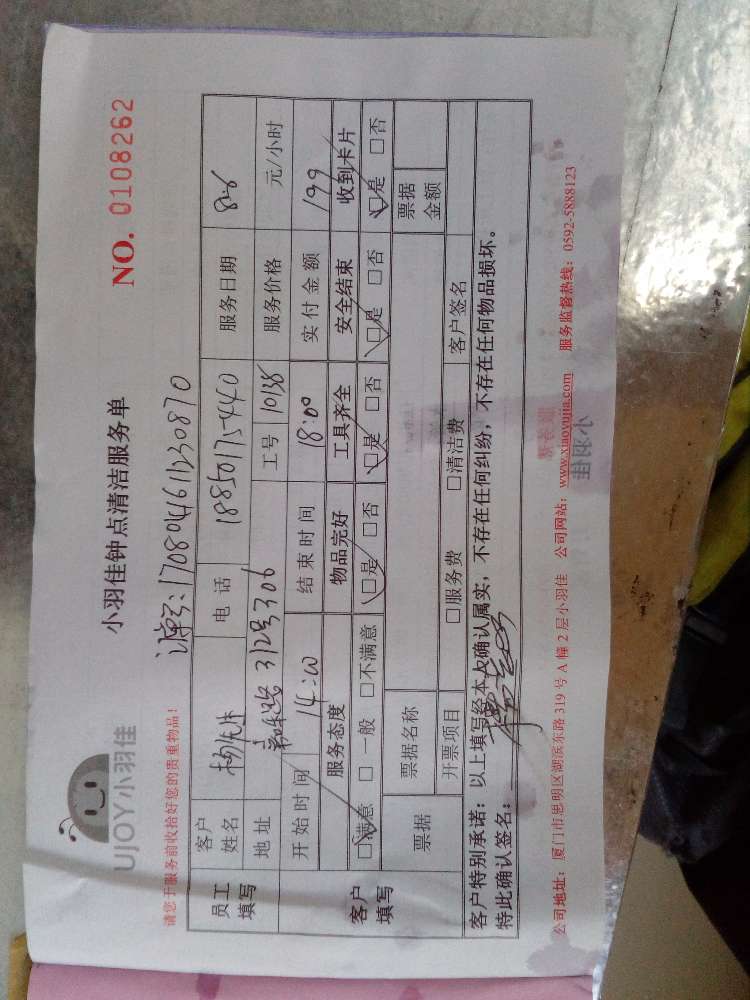 UJOY小羽佳
小羽佳钟点清洁服务单
NO. 0108262
请您于服务前收拾好您的贵重物品!
订单号:1708046111230870
员工填写
客户姓名 杨先生 电话 18850173440 服务日期 8.6
地址 312号306 工号 10138 服务价格 元/小时
客户填写
开始时间 14:00 结束时间 18:00 实付金额 199
服务态度 物品完好 工具齐全 安全结束 收到卡片
□满意 □一般 □不满意 □是 □否 □是 □否 □是 □否 □是 □否
票据 票据名称 票据金额
开票项目 □服务费 □清洁费 客户签名
客户特别承诺:以上填写经本人确认属实,不存在任何纠纷,不存在任何物品损坏。
特此确认签名:
公司地址:厦门市思明区湖滨东路 319 号 A 幢 2 层小羽佳 公司网站:www.xiaoyujia.com 服务监督热线:0592-5888123